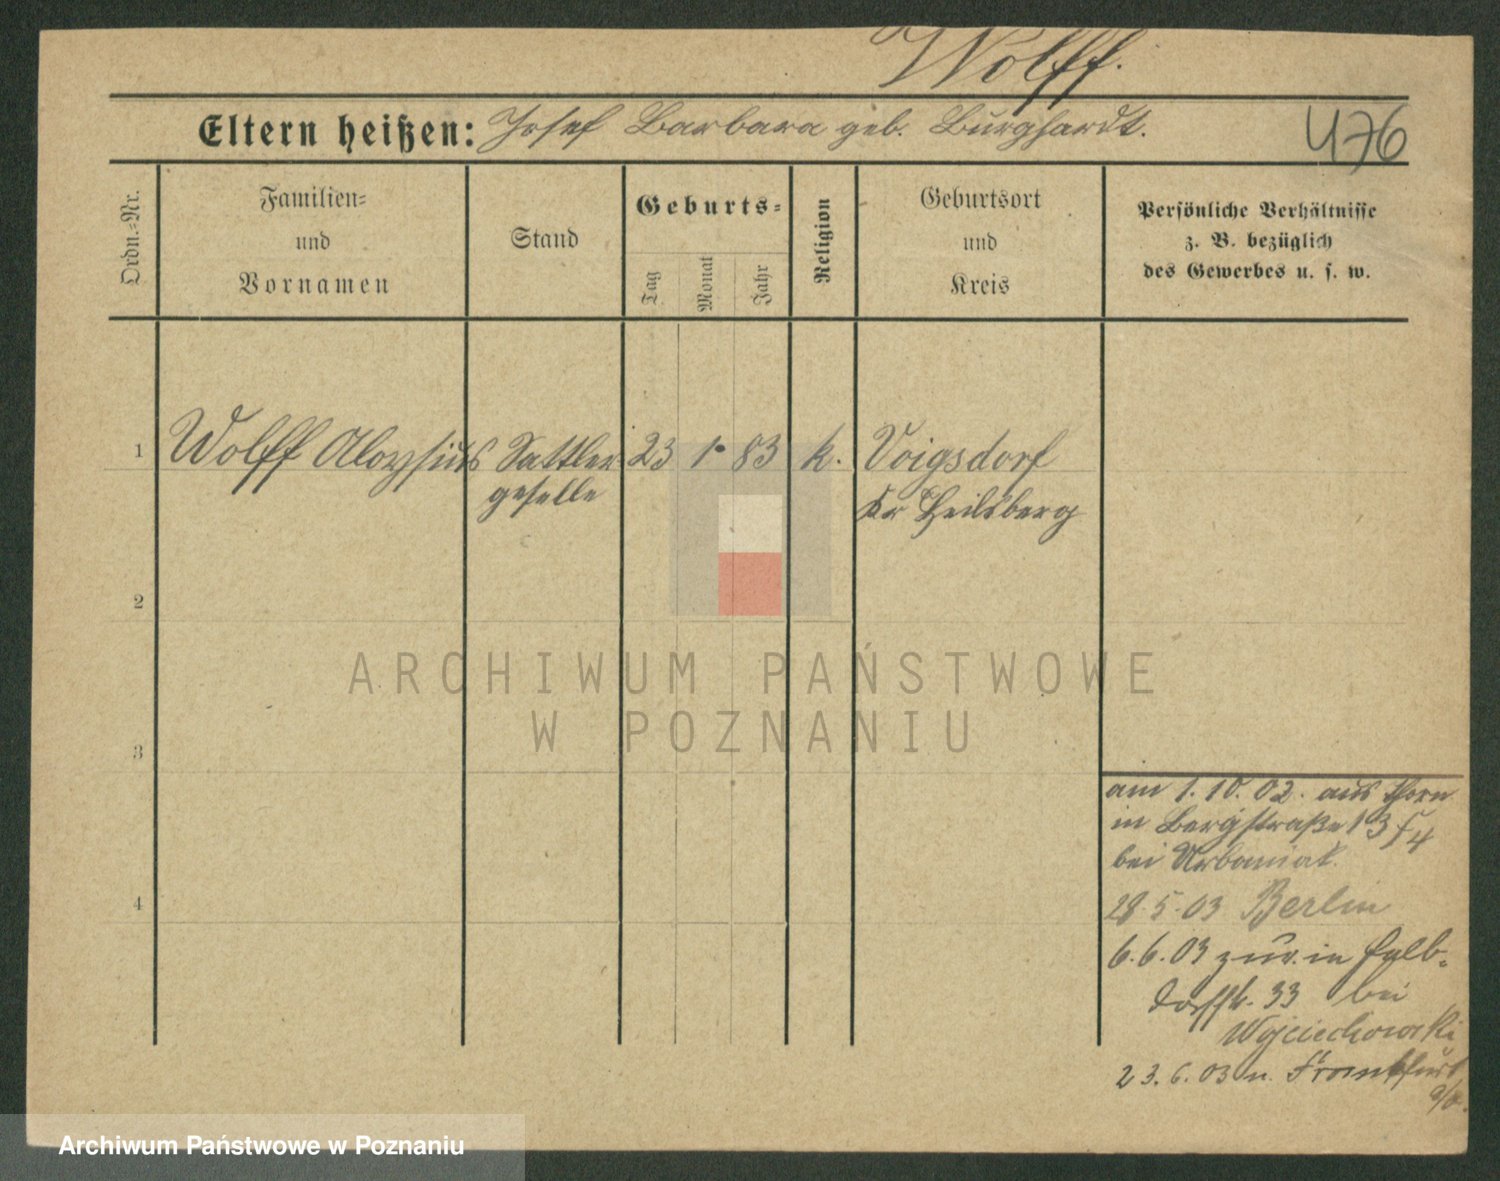 Wolff.
Eltern heißen: Josef Barbara geb. Burghardt.
476
Ordn.-Nr.
Familien-
und
Vornamen
Stand
Geburts-
Tag
Monat
Jahr
Religion
Geburtsort
und
Kreis
Persönliche Verhältnisse
z. B. bezüglich
des Gewerbes u. s. w.
1 Wolff Aloysius Sattler 23 1. 83 k. Voigsdorf
geselle Kr Heilsberg
2
ARCHIWUM PAŃSTWOWE
W POZNANIU
3
am 1.10.02. aus Thorn
in Bergstraße 13
bei Urbaniak.
4
28.5.03 Berlin
6.6.03 zur. in Halb-
dorfstr. 33 bei
Wojciechowski
23.6.03 n. Frankfurt
a/O.
Archiwum Państwowe w Poznaniu